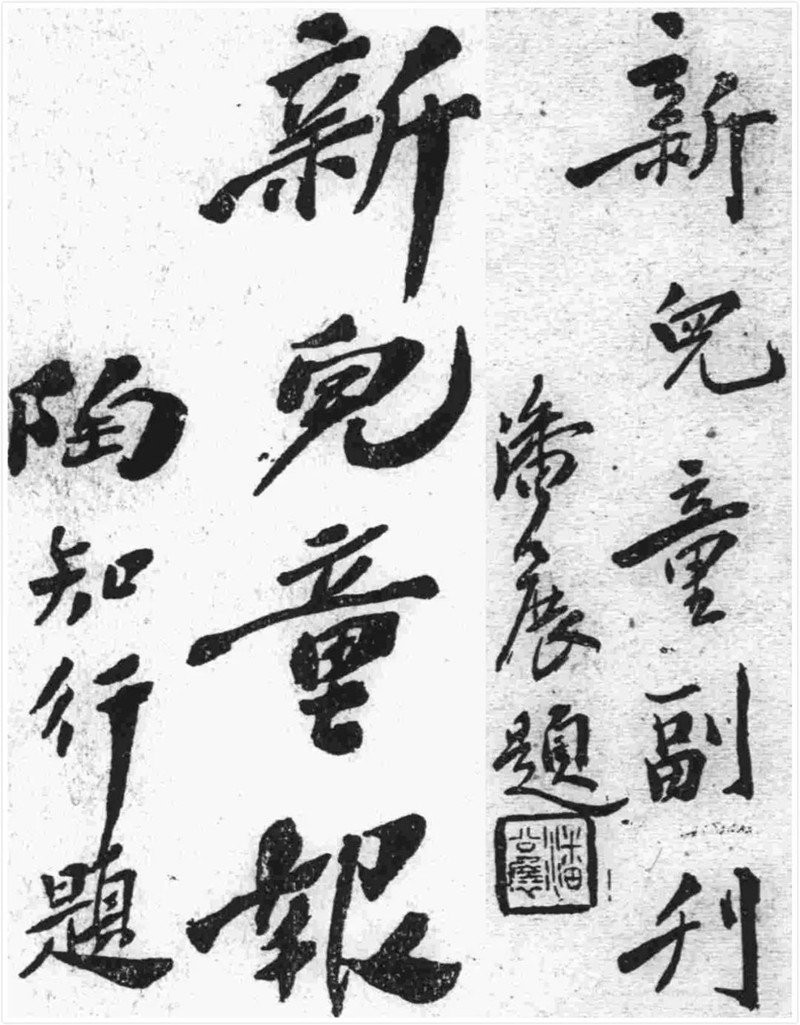 新兒童副刊
潘公展題
新兒童報
陶知行題